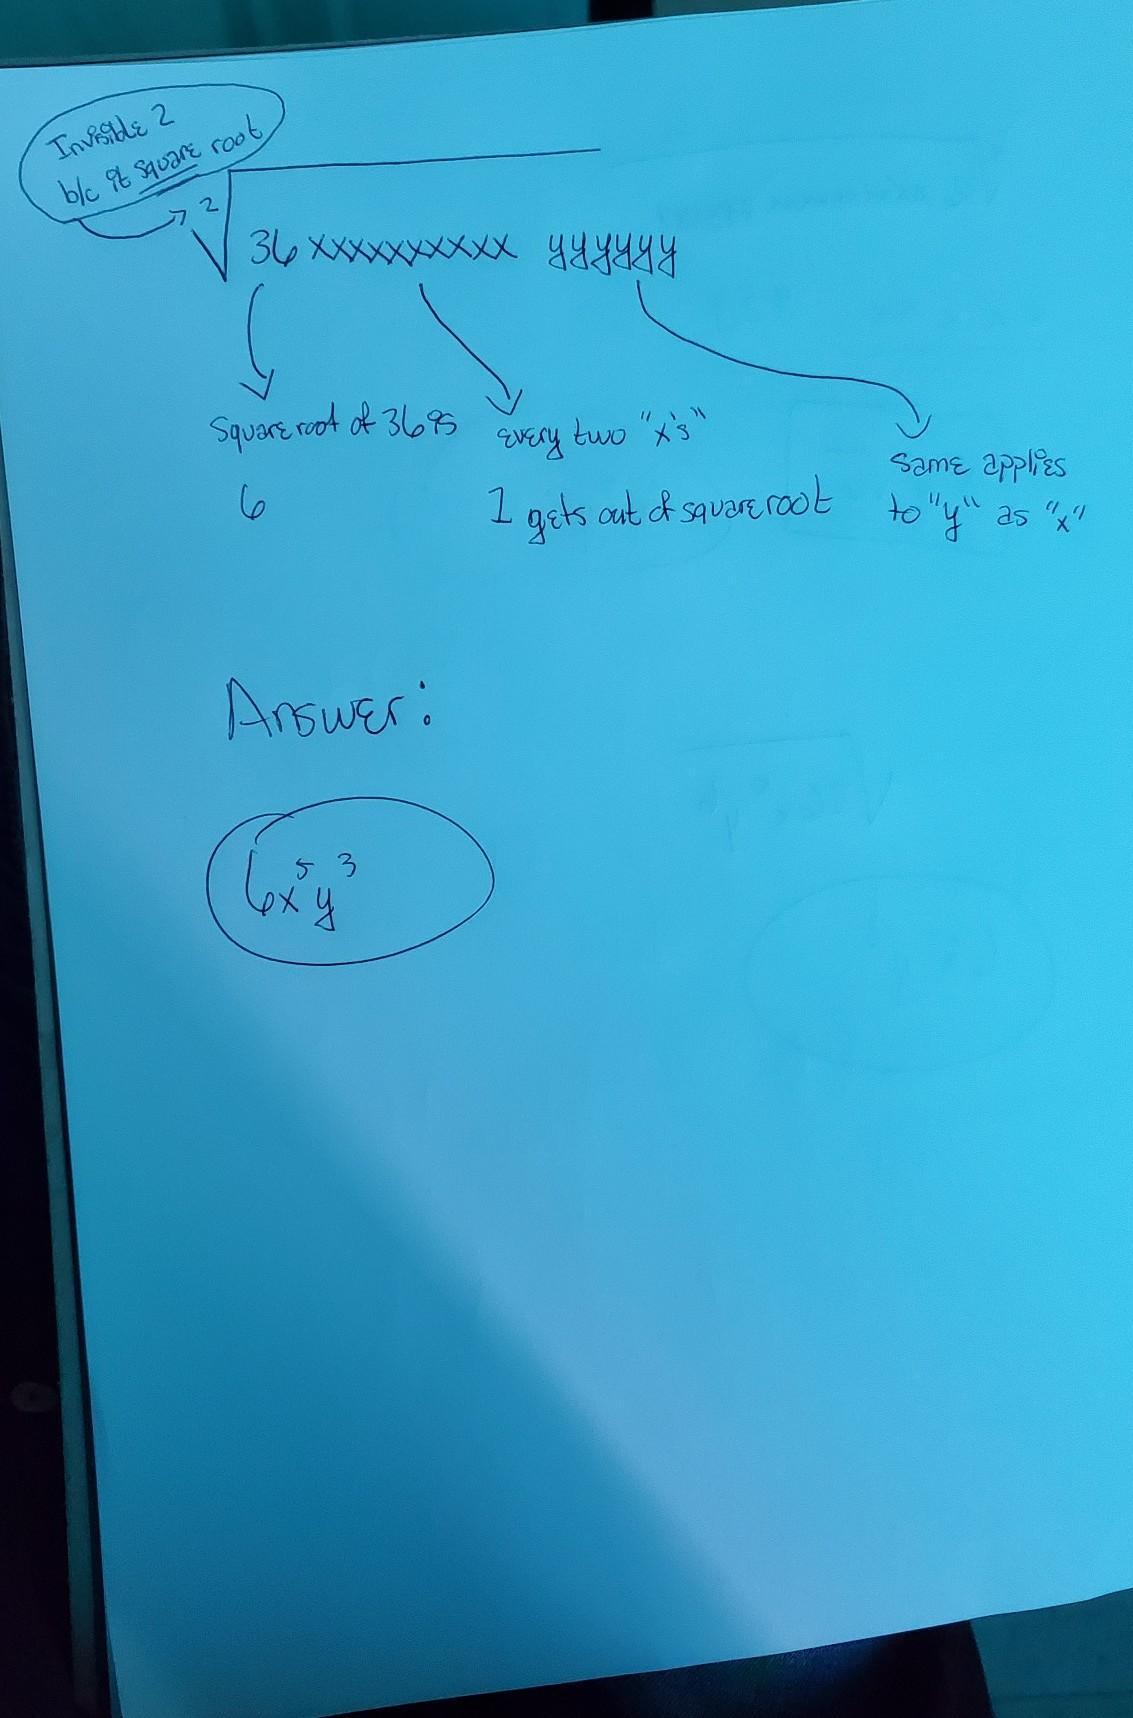 Invisible 2
b/c it square root
2
√36 xxxxxxxxxx yyyyyy
Square root of 36 is
6
every two "x's"
1 gets out of square root
same applies
to "y" as "x"
Answer:
6x⁵y³